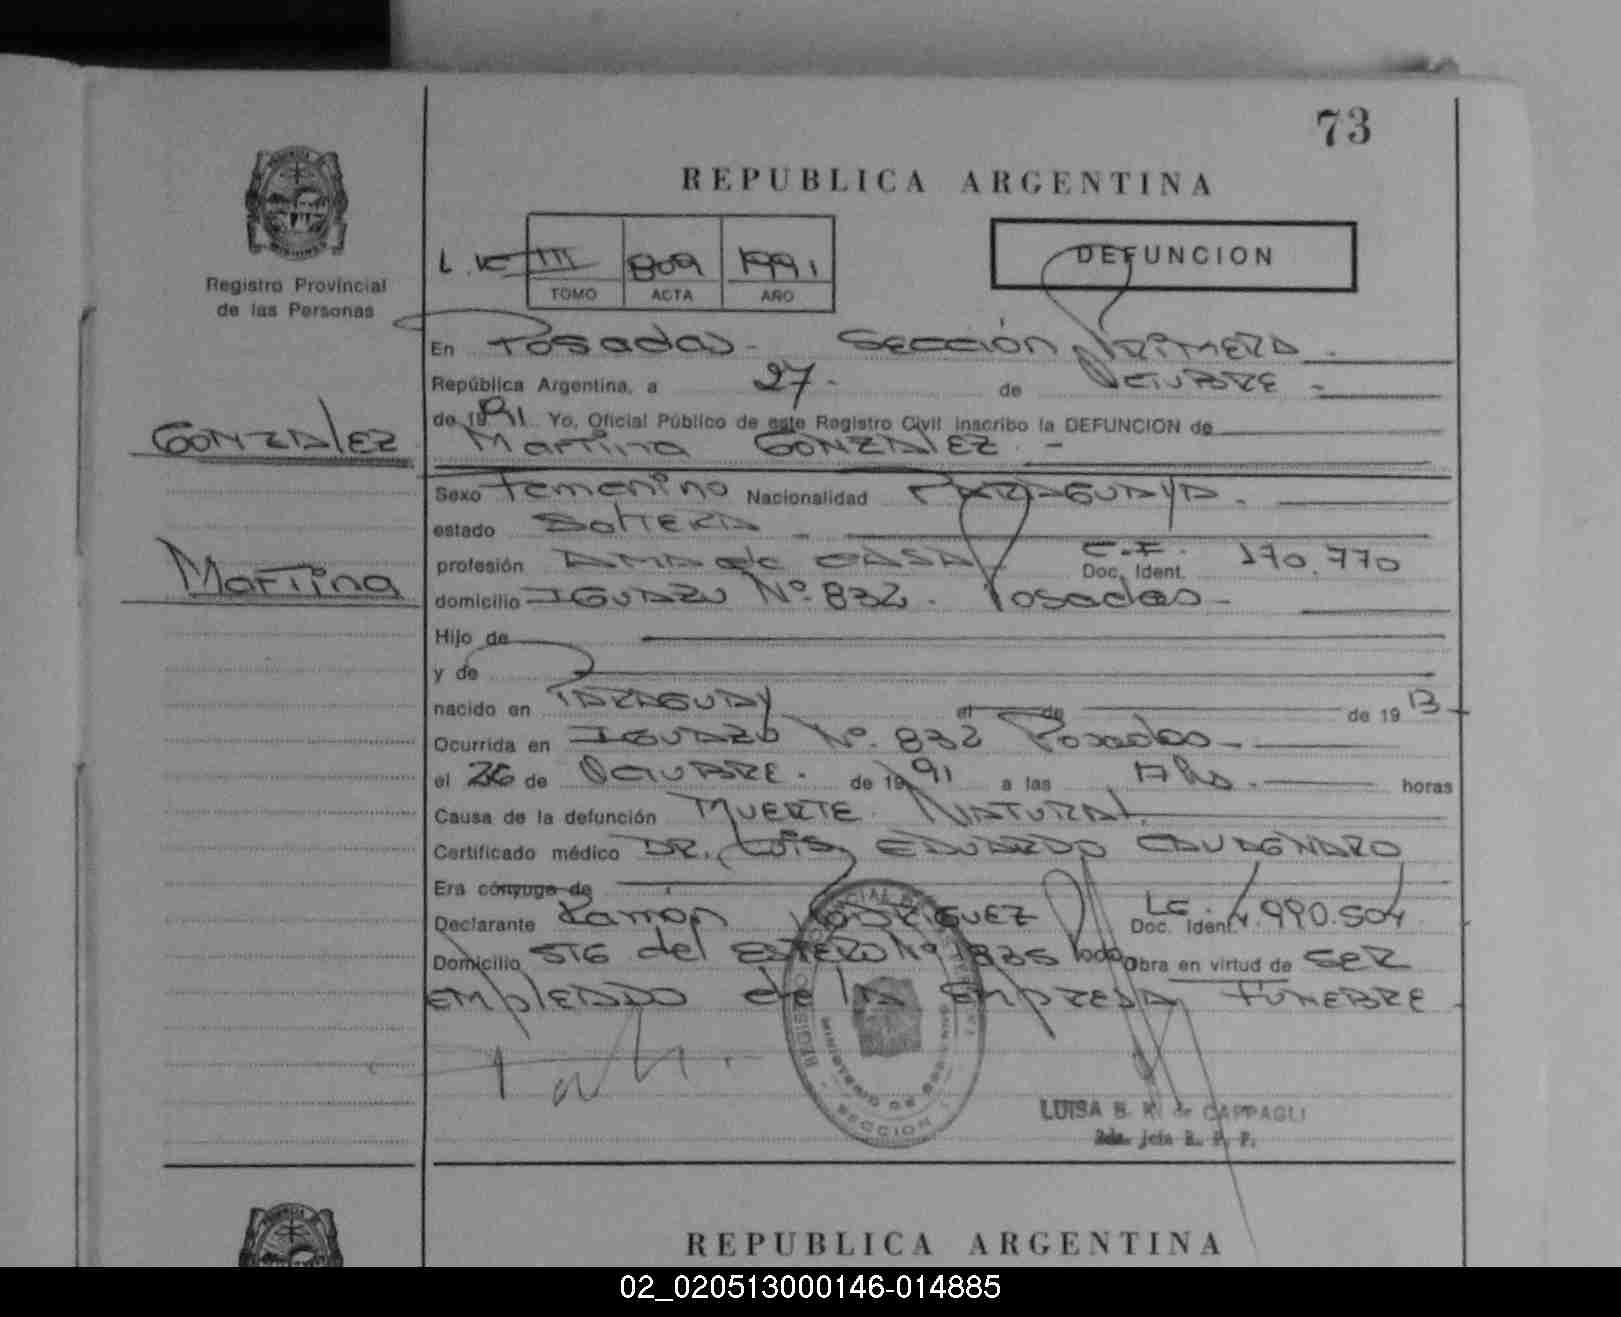 73
REPUBLICA ARGENTINA
Registro Provincial
de las Personas
III 809 1991
TOMO ACTA AÑO
DEFUNCION
En Posadas - Sección Primera
República Argentina, a 27 - de Octubre -
de 1991 Yo, Oficial Público de este Registro Civil inscribo la DEFUNCION de
GONZALEZ
Martina GONZALEZ -
Sexo Femenino Nacionalidad PARAGUAYA -
estado Soltera -
Martina
profesión AMA de CASA C.I. Doc. Ident. 170.770
domicilio IGUAZU Nº 832 - Posadas -
Hijo de
y de
nacido en PARAGUAY el de de 1913
Ocurrida en IGUAZU Nº 832 Posadas -
el 26 de Octubre - de 1991 a las 17 hs - horas
Causa de la defunción MUERTE NATURAL
Certificado médico DR. Luis EDUARDO
Era cónyuge de
Declarante Ramón RODRIGUEZ L.E. Doc. Ident. 4.990.504
Domicilio STG del ESTERO Nº 1835 Pdas Obra en virtud de SER
EMPLEADO de la EMPRESA FUNEBRE
MINISTERIO DE GOBIERNO
SECCION
LUISA B. K. de CAPPAGLI
2da. jefa R. P. P.
REPUBLICA ARGENTINA
02_020513000146-014885